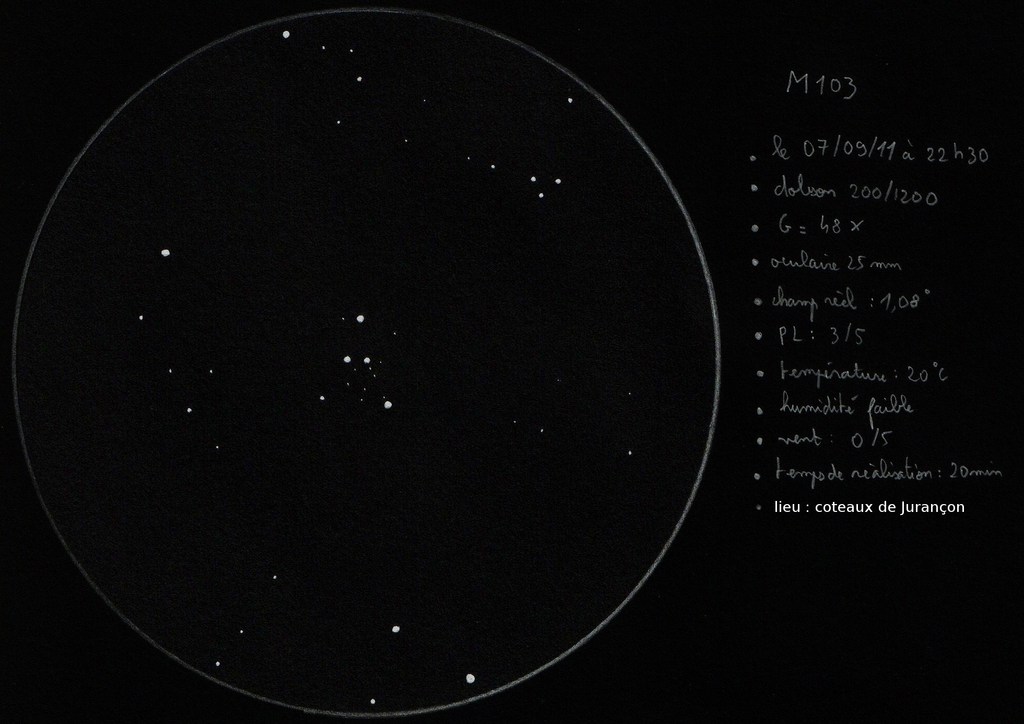 M103
• le 07/09/11 à 22h30
• dobson 200/1200
• G = 48 x
• oculaire 25 mm
• champ réel : 1,08°
• PL : 3/5
• température : 20°C
• humidité faible
• vent : 0/5
• temps de réalisation : 20min
• lieu : coteaux de Jurançon